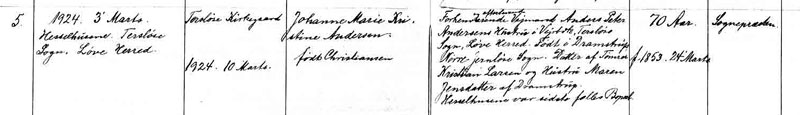 5.
1924. 3' Marts.
Hesselhusene. Terslöse
Sogn. Löve Herred.
Terslöse Kirkegaard
1924. 10 Marts.
Johanne Marie Kri-
stine Andersen.
født Christiansen
afdöde
Forhenværende Vejmand Anders Peter
Andersens Hustru i Terslöse
Sogn, Löve Herred. Født i Dramstrup
Nörre Jernløse Sogn. Datter af Tömrer
Kristian Larsen og Hustru Maren
Jensdatter af Dramstrup.
Hesselhusene var sidste fælles Bopæl.
70 Aar.
f. 1853. 24' Marts
Sognepræsten.